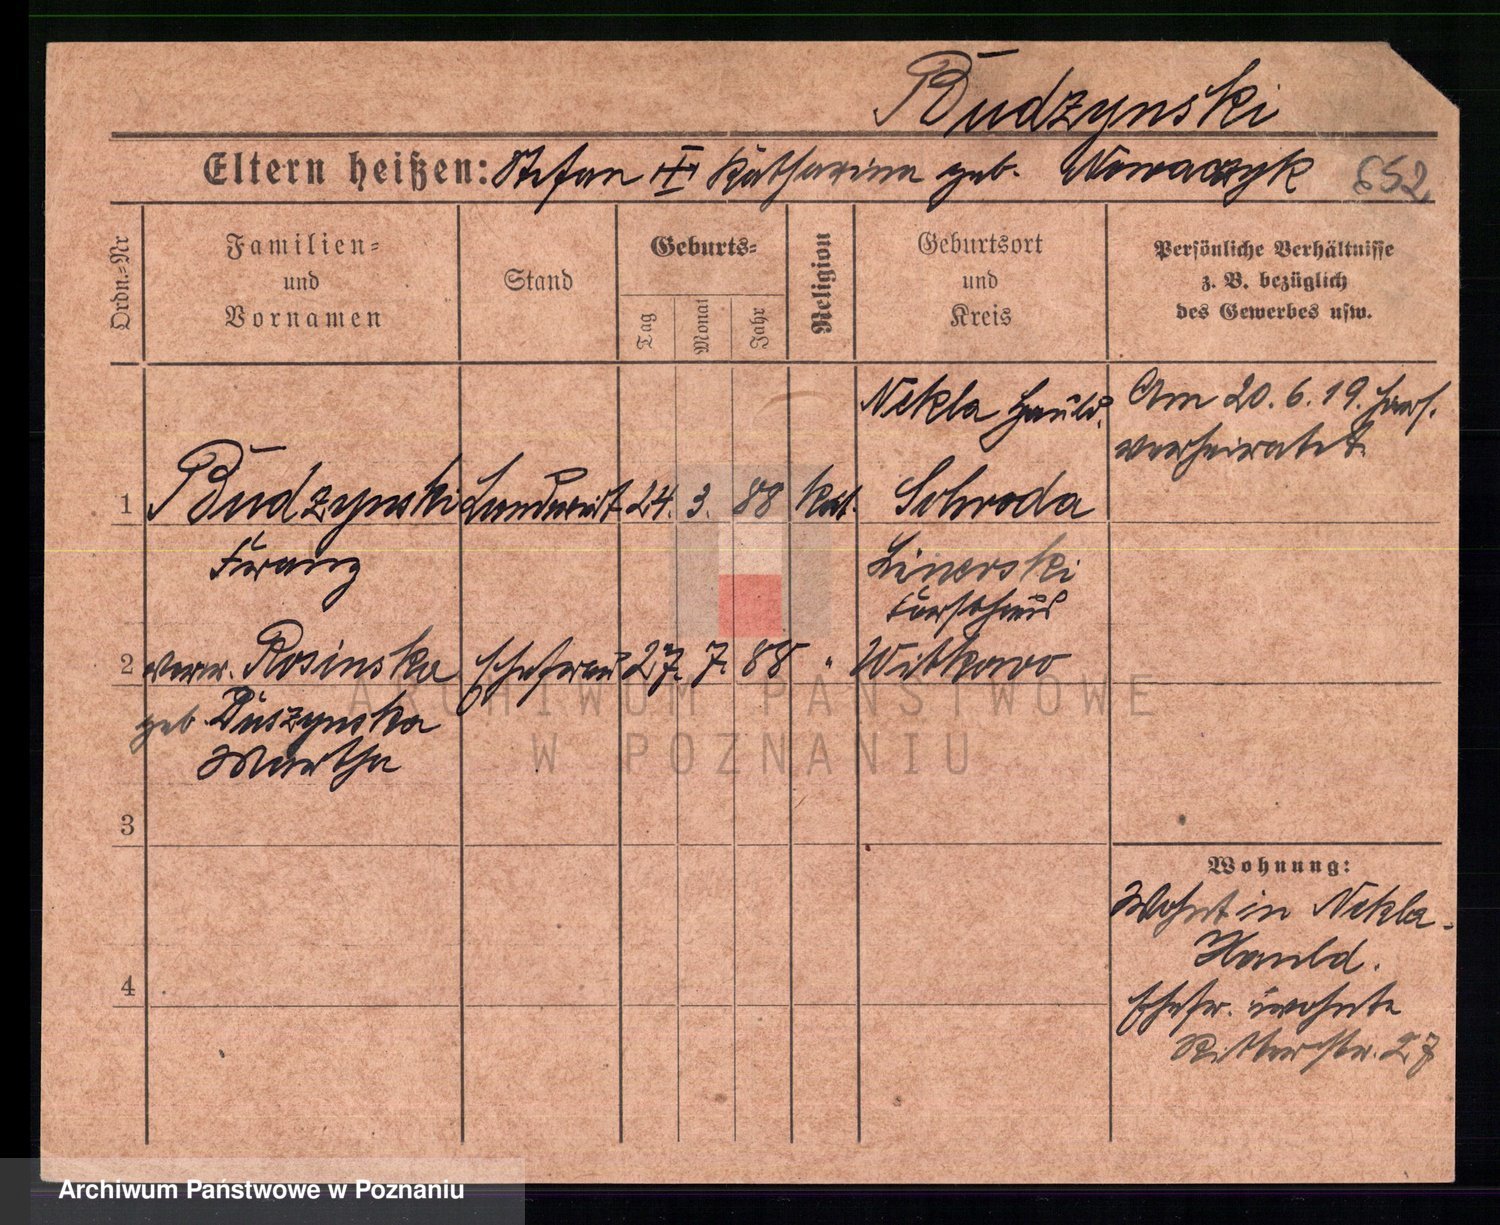 Budzynski
Eltern heißen: Stefan Katharina geb. Nowaczyk 652
Ordn.=Nr
Familien=
und
Vornamen
Stand
Geburts=
Tag
Monat
Jahr
Religion
Geburtsort
und
Kreis
Persönliche Verhältnisse
z. B. bezüglich
des Gewerbes usw.
Nekla Hauld. Am 20.6.19. hars.
verheiratet.
1 Budzynski Landwirt 24. 3. 88 kat. Schroda
Franz
Forsthaus
2 verw. Rosinska Ehefrau 27. 7. 88 " Witkowo
geb. Duszynska
Martha
3
4
Wohnung:
Wohnt in Nekla-
Hauld.
Ehefr. wohnte
Ritterstr. 27
ARCHIWUM PAŃSTWOWE
W POZNANIU
Archiwum Państwowe w Poznaniu